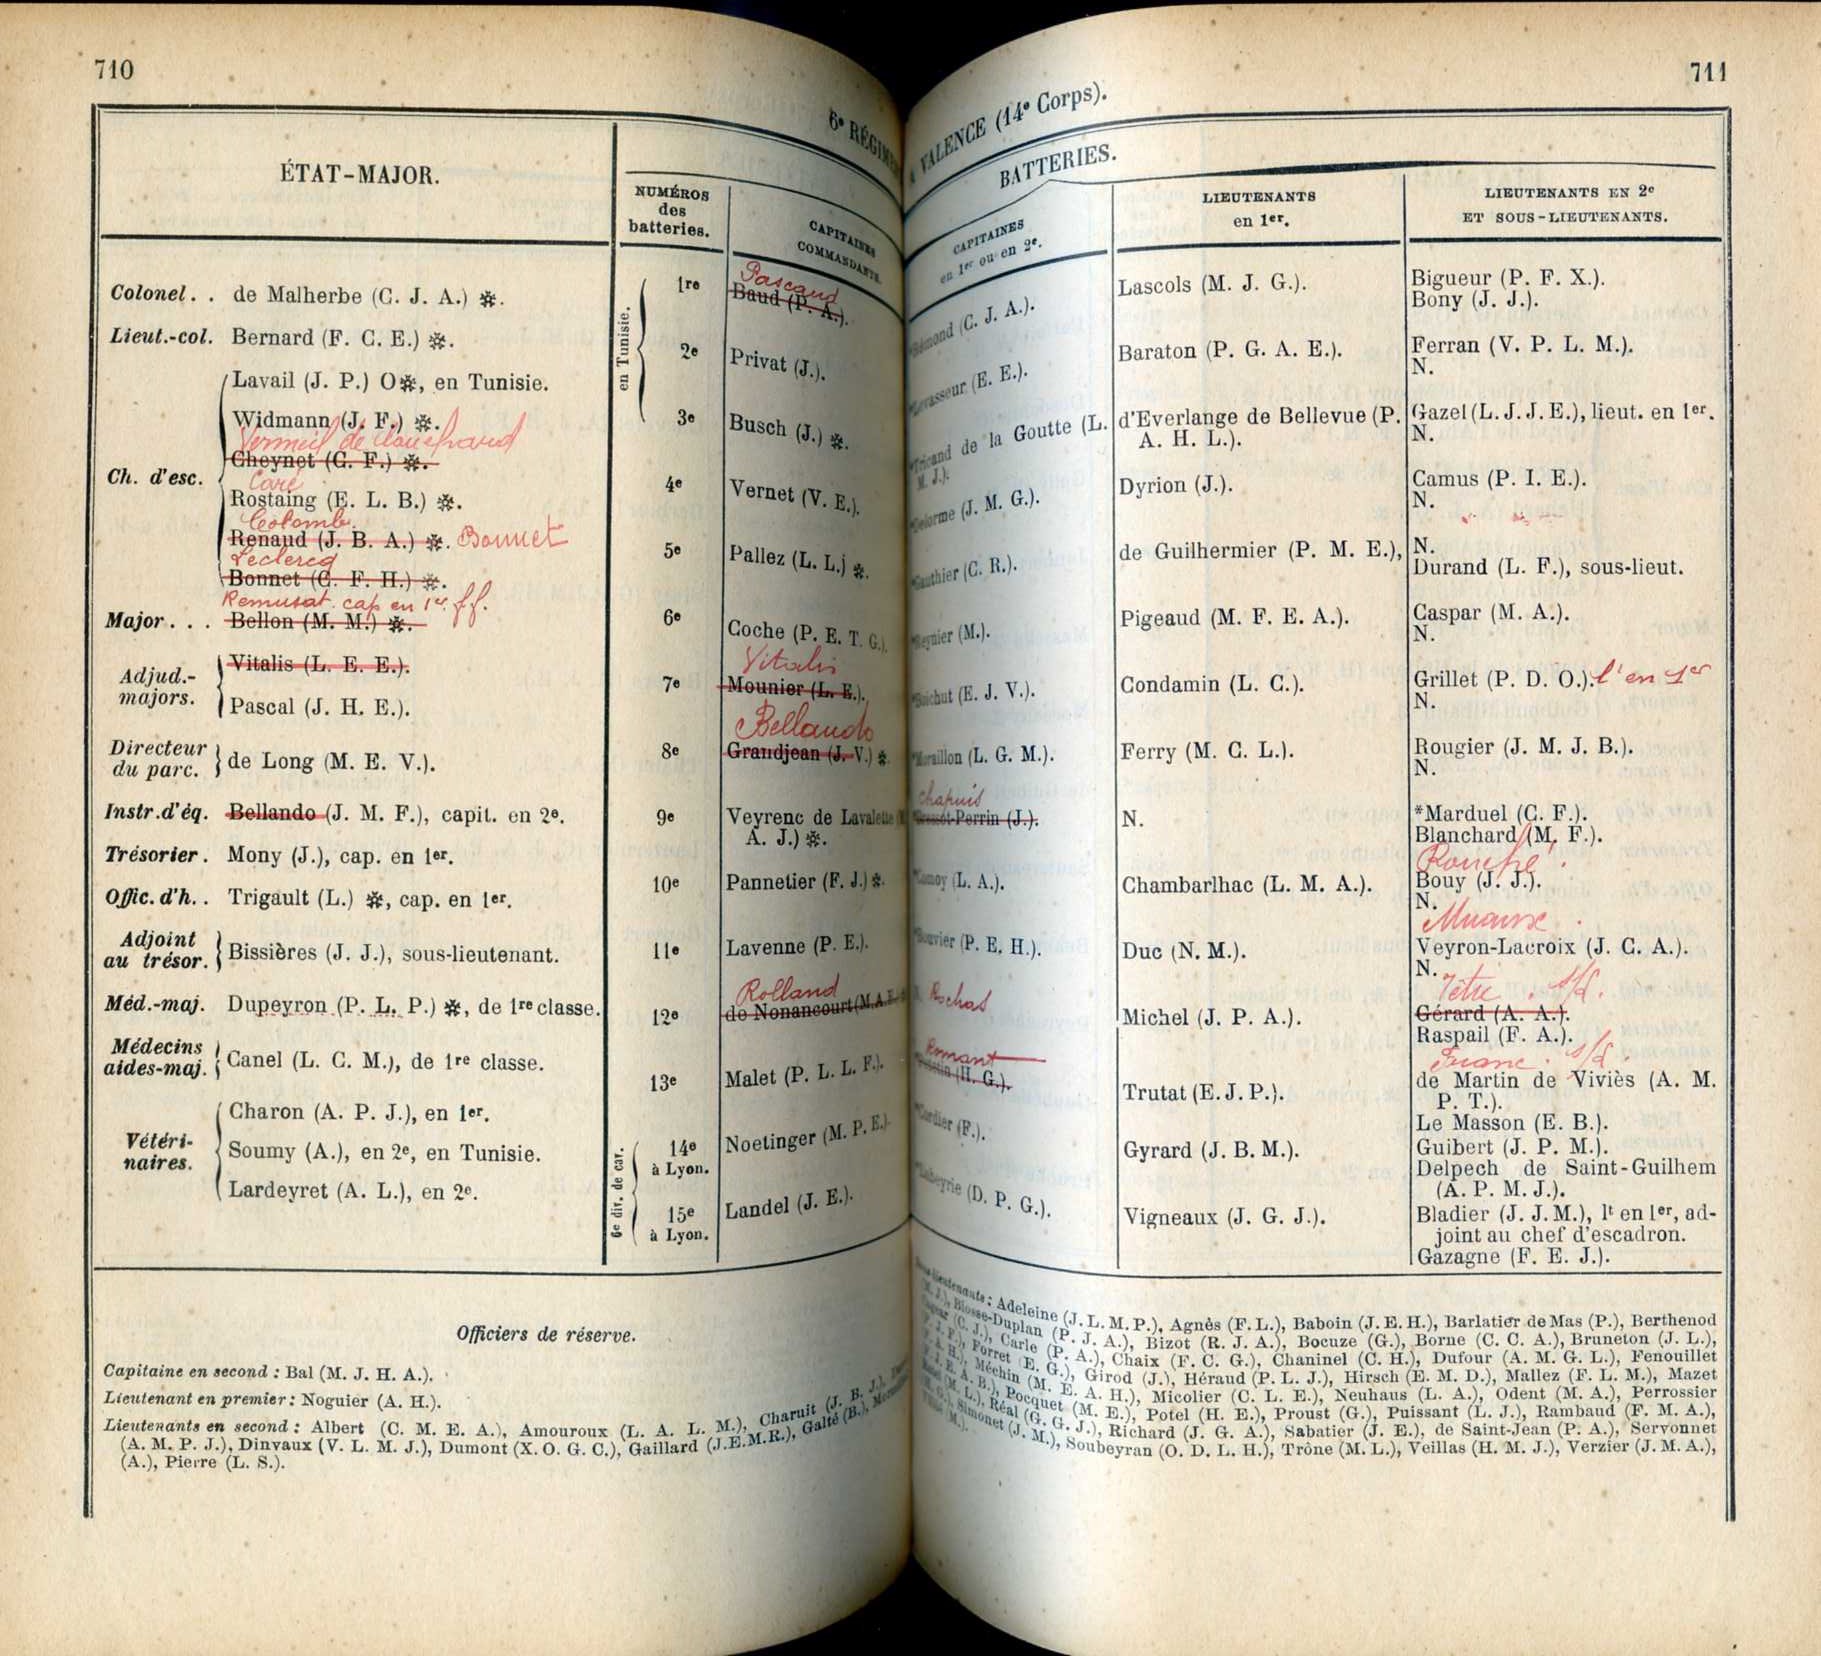 710
ÉTAT-MAJOR.
Colonel. . de Malherbe (C. J. A.) ❊.
Lieut.-col. Bernard (F. C. E.) ❊.
Lavail (J. P.) O❊, en Tunisie.
Widmann (J. F.) ❊.
Vermeil de
Cheynet (G. F.) ❊.
Ch. d'esc.
Caré
Rostaing (E. L. B.) ❊.
Colomb
Renaud (J. B. A.) ❊. Bonnet
Leclercq
Bonnet (C. F. H.) ❊.
Remusat cap en 1er f.f.
Major . . . Bellon (M. M.) ❊.
Adjud.-majors.
Vitalis (L. E. E.).
Pascal (J. H. E.).
Directeur du parc. de Long (M. E. V.).
Instr. d'éq. Bellando (J. M. F.), capit. en 2e.
Trésorier. Mony (J.), cap. en 1er.
Offic. d'h. . Trigault (L.) ❊, cap. en 1er.
Adjoint au trésor. Bissières (J. J.), sous-lieutenant.
Méd.-maj. Dupeyron (P. L. P.) ❊, de 1re classe.
Médecins aides-maj. Canel (L. C. M.), de 1re classe.
Vétéri-naires.
Charon (A. P. J.), en 1er.
Soumy (A.), en 2e, en Tunisie.
Lardeyret (A. L.), en 2e.
6e RÉGIM
NUMÉROS
des
batteries.
CAPITAINES
COMMANDANTS.
en Tunisie.
1re
Pascaud
Baud (P. A.).
2e Privat (J.).
3e Busch (J.) ❊.
4e Vernet (V. E.).
5e Pallez (L. L.) ❊.
6e Coche (P. E. T. G.).
Vitalis
7e Mounier (L. E.).
Bellando
8e Grandjean (J. V.) ❊.
9e Veyrenc de Lavalette
A. J.) ❊.
10e Pannetier (F. J.) ❊.
11e Lavenne (P. E.).
Rolland
12e de Nonancourt (M. A. E.
13e Malet (P. L. L. F.).
6e div. de cav.
14e
à Lyon. Noetinger (M. P. E.).
15e
à Lyon. Landel (J. E.).
Officiers de réserve.
Capitaine en second : Bal (M. J. H. A.).
Lieutenant en premier : Noguier (A. H.).
Lieutenants en second : Albert (C. M. E. A.), Amouroux (L. A. L. M.), Charuit (J. B. J.),
(A. M. P. J.), Dinvaux (V. L. M. J.), Dumont (X. O. G. C.), Gaillard (J. E. M. R.), Galté (B.),
(A.), Pierre (L. S.).
711
VALENCE (14e Corps).
BATTERIES.
CAPITAINES
en 1er ou en 2e.
(C. J. A.).
(E. E.).
de la Goutte (L.
M. J.).
(J. M. G.).
(C. R.).
(M.).
(E. J. V.).
(L. G. M.).
Chapuis
Perrin (J.).
(L. A.).
(P. E. H.).
Rochas
(H. G.).
(F.).
(D. P. G.).
LIEUTENANTS
en 1er.
Lascols (M. J. G.).
Baraton (P. G. A. E.).
d'Everlange de Bellevue (P.
A. H. L.).
Dyrion (J.).
de Guilhermier (P. M. E.),
Pigeaud (M. F. E. A.).
Condamin (L. C.).
Ferry (M. C. L.).
N.
Chambarlhac (L. M. A.).
Duc (N. M.).
Michel (J. P. A.).
Trutat (E. J. P.).
Gyrard (J. B. M.).
Vigneaux (J. G. J.).
LIEUTENANTS EN 2e
ET SOUS-LIEUTENANTS.
Bigueur (P. F. X.).
Bony (J. J.).
Ferran (V. P. L. M.).
N.
Gazel (L. J. J. E.), lieut. en 1er.
N.
Camus (P. I. E.).
N.
N.
Durand (L. F.), sous-lieut.
Caspar (M. A.).
N.
Grillet (P. D. O.). lt en 1er
N.
Rougier (J. M. J. B.).
N.
*Marduel (C. F.).
Blanchard (M. F.).
Bouy (J. J.).
N.
Veyron-Lacroix (J. C. A.).
N.
s/l.
Gérard (A. A.).
Raspail (F. A.).
Franc. s/l.
de Martin de Viviès (A. M.
P. T.).
Le Masson (E. B.).
Guibert (J. P. M.).
Delpech de Saint-Guilhem
(A. P. M. J.).
Bladier (J. J. M.), lt en 1er, ad-
joint au chef d'escadron.
Gazagne (F. E. J.).
Sous-lieutenants : Adeleine (J. L. M. P.), Agnès (F. L.), Baboin (J. E. H.), Barlatier de Mas (P.), Berthenod
Biosse-Duplan (P. J. A.), Bizot (R. J. A.), Bocuze (G.), Borne (C. C. A.), Bruneton (J. L.),
(C. J.), Carle (P. A.), Chaix (F. C. G.), Chaninel (C. H.), Dufour (A. M. G. L.), Fenouillet
Forret (E. G.), Girod (J.), Héraud (P. L. J.), Hirsch (E. M. D.), Mallez (F. L. M.), Mazet
Méchin (M. E. A. H.), Micolier (C. L. E.), Neuhaus (L. A.), Odent (M. A.), Perrossier
Pocquet (M. E.), Potel (H. E.), Proust (G.), Puissant (L. J.), Rambaud (F. M. A.),
Réal (G. G. J.), Richard (J. G. A.), Sabatier (J. E.), de Saint-Jean (P. A.), Servonnet
Simonet (J. M.), Soubeyran (O. D. L. H.), Trône (M. L.), Veillas (H. M. J.), Verzier (J. M. A.),